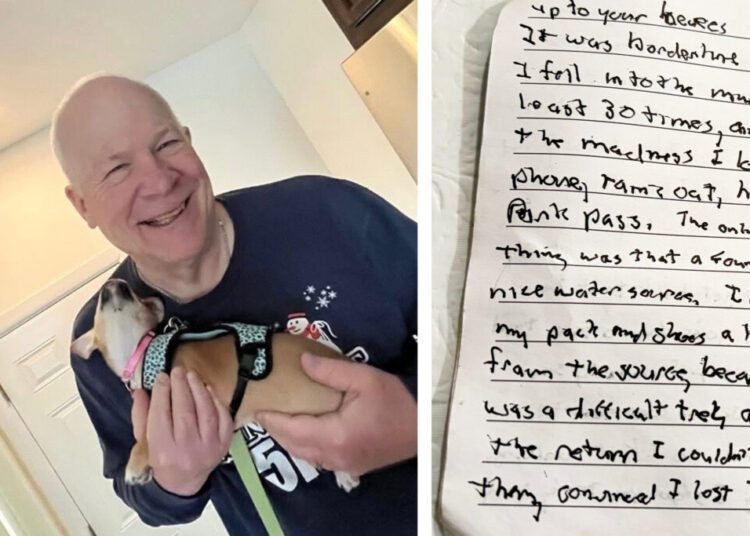 up to your
It was borderline
I fell into the
least 30 times,
the madness I
phone, ran out,
pass. The
thing was that a
nice water source. I
my pack and shoes a
from the source
was a difficult trek
the return I
thing convinced I lost
5